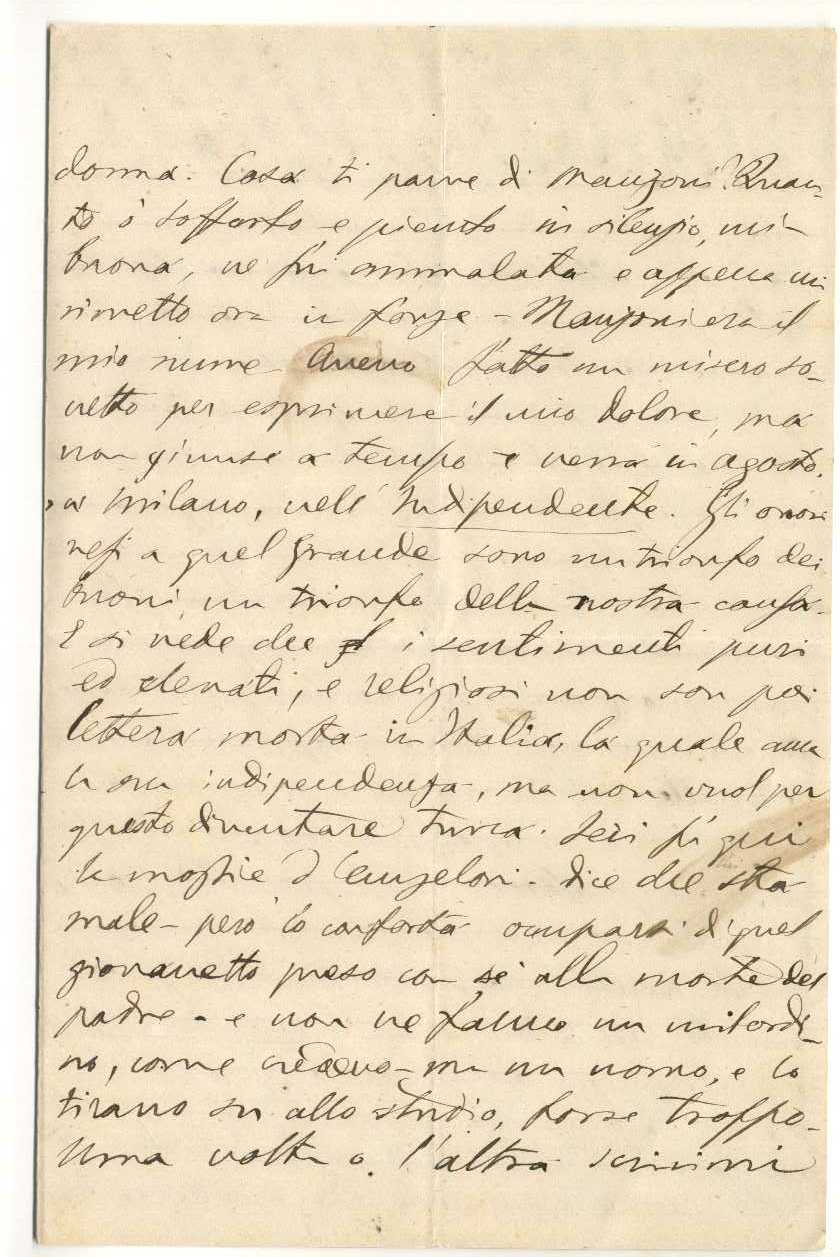 donna. Cosa ti parve di Manzoni? Quan-
to ò sofferto e pianto in silenzio, mi-
buona, ne fui ammalata e appena mi
rimetto ora in forze - Manzoni era il
mio nume - Avevo fatto un misero so-
netto per esprimere il mio dolore, ma
non giunse a tempo e verrà in agosto,
a Milano, nell' Indipendente. Gli onori
resi a quel grande sono un trionfo dei
buoni, un trionfo della nostra causa.
E si vede che i sentimenti puri
ed elevati, e religiosi non son poi
lettera morta in Italia, la quale ama
la sua indipendenza, ma non vuol per
questo diventare turca. Ieri fu qui
la moglie d
male - però lo conforta occuparsi di quel
giovanetto preso con sé alla morte del
padre - e non ne fanno un milordi-
no, come credevo - ma un uomo, e lo
tirano su allo studio, forse troppo -
Una volta o l'altra scrivimi